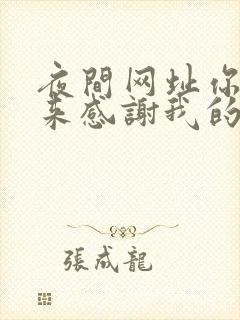 夜間网址你
来感謝我的
張成龍